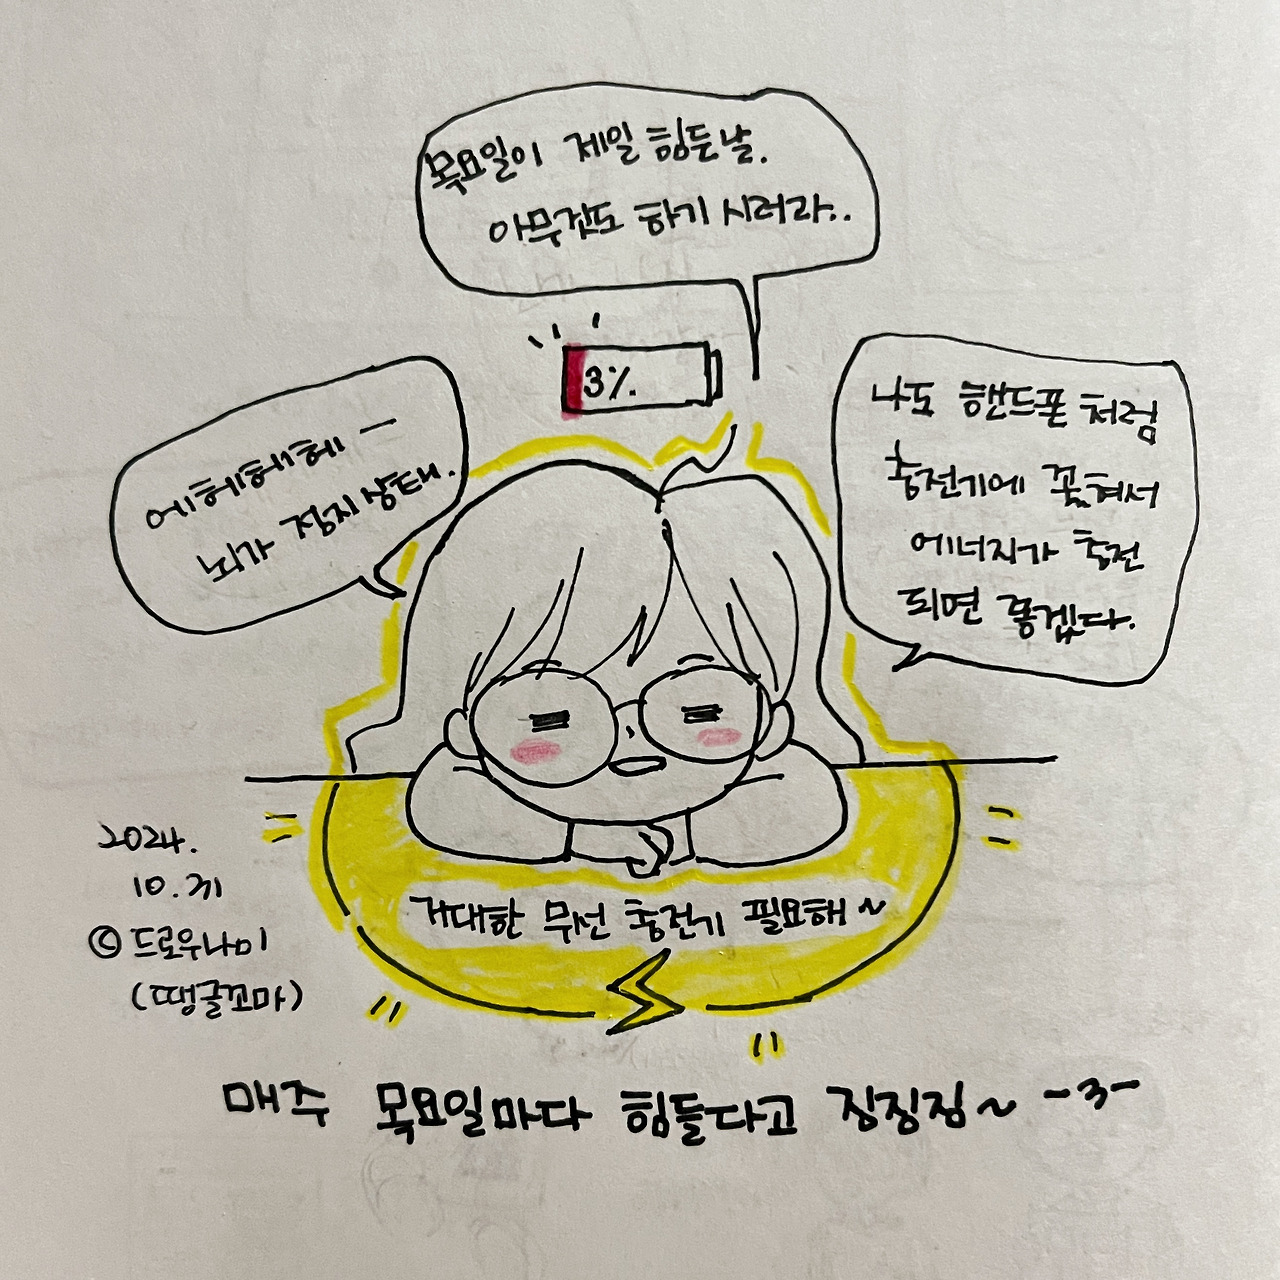 목요일이 제일 힘든날.
아무것도 하기 시러라..
3%.
에헤헤헤ㅡ
뇌가 정지상태.
나도 핸드폰처럼
충전기에 꽂혀서
에너지가 충전
되면 좋겠다.
거대한 무선 충전기 필요해~
2024.
10.31
© 드로우나미
(땡글꼬마)
매주 목요일마다 힘들다고 징징징~ -3-